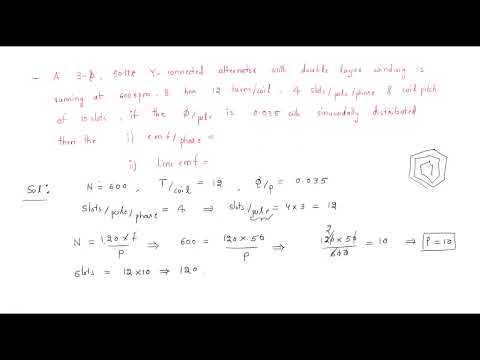 - A 3-ϕ, 50Hz Y-connected alternator with double layer winding is
running at 600rpm. & has 12 turns/coil, 4 slots/pole/phase & coil pitch
of 10 slots. if the ϕ/pole is 0.035 wb sinusoidally distributed
then the i) emf/phase =
ii) Line emf =
Sol: N = 600 , T/coil = 12 , ϕ/p = 0.035
Slots/pole/phase = 4 ⇒ slots/pole = 4x3 = 12
N = 120xf/P ⇒ 600 = 120x50/P ⇒ 120x50/600 = 10 ⇒ P = 10
2
slots = 12x10 ⇒ 120